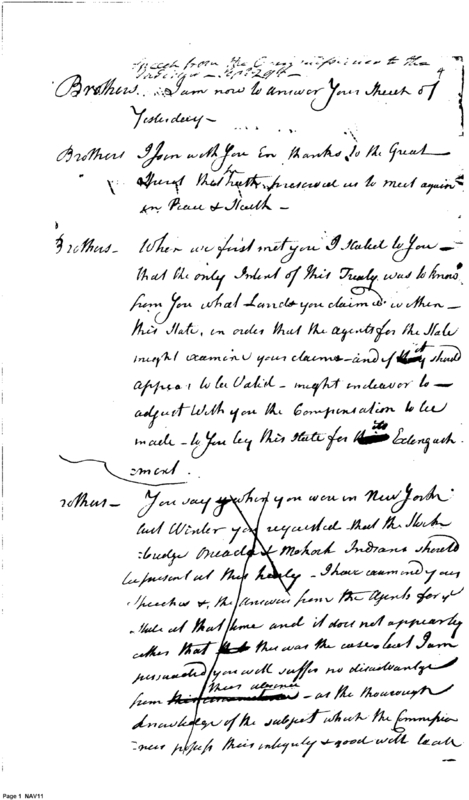 Speech from the Commissioner to the
Sept 29th
4
Brothers I am now to answer Your Speech of
Yesterday —
Brothers I Join with You in thanks to the Great
Spirit that hath preserved us to meet again
in Peace & Health —
Brothers — When we first met you I stated to You —
that the only Intent of this Treaty was to know
from You what Lands you claimed within —
this State, in order that the agents for the State
might examine your claims — and if it should
appear to be Valid — might endeavor to —
adjust with you the Compensation to be
made — to You by this State for its Extinguish
=ment.
rothers — You say when you were in New York
last Winter you requested that the Stock
=bridge Oneada & Mohock Indians should
be present at this treaty — I have examined your
Speeches & the answers from the Agents for ye
State at that time and it does not appear by
either that this was the case — but I am
persuaded you will suffer no disadvantage
from their absence — as the thourough
knowledge of the subject which the Commissio
=ners possess their integrity & good will
Page 1 NAV11